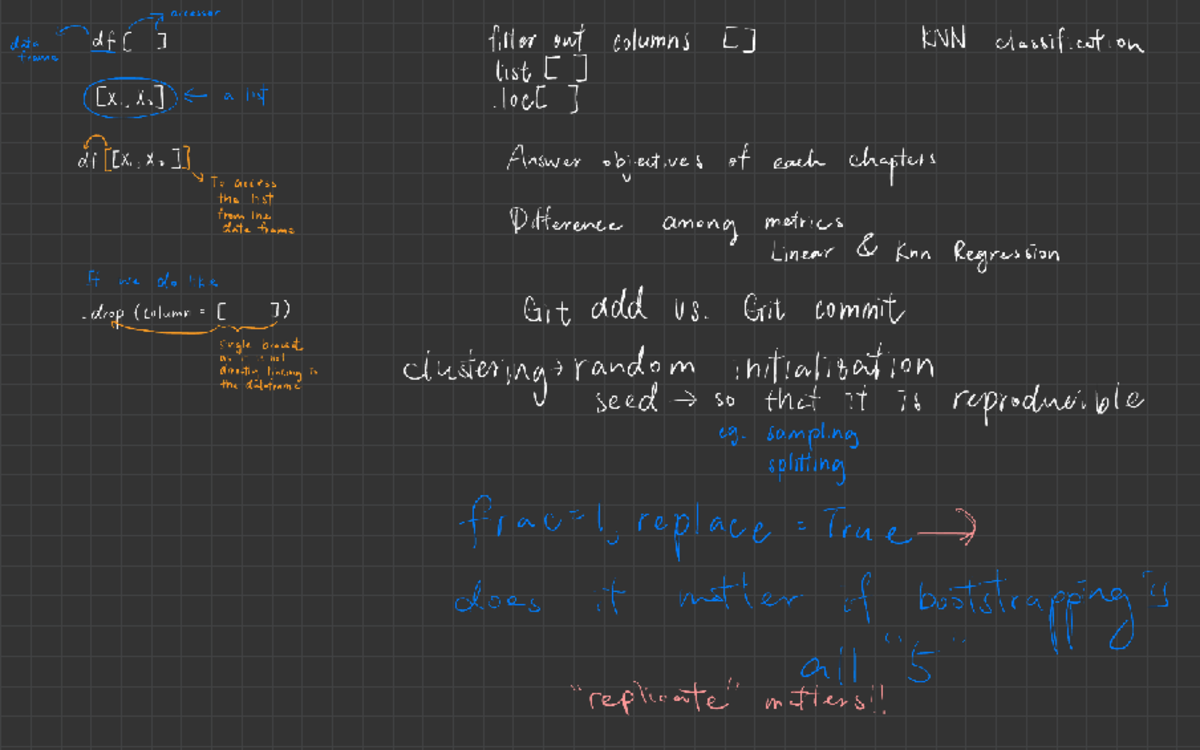 accessor
data
frame
df[ ]
[x₁, x₂] ← a list
df[[x₁, x₂]]
To access
the list
from the
data frame
If we do like
.drop (column = [ ])
single bracket
as it is not
directly linking to
the dataframe
filter out columns []
list [ ]
.loc[ ]
KNN classification
Answer objectives of each chapters
Difference among metrics
Linear & Knn Regression
Git add vs. Git commit
clustering → random initialization
seed → so that it is reproducible
eg. sampling
splitting
frac=1, replace = True →
does it matter if bootstrapping is
all "5"
"replicate" matters!!